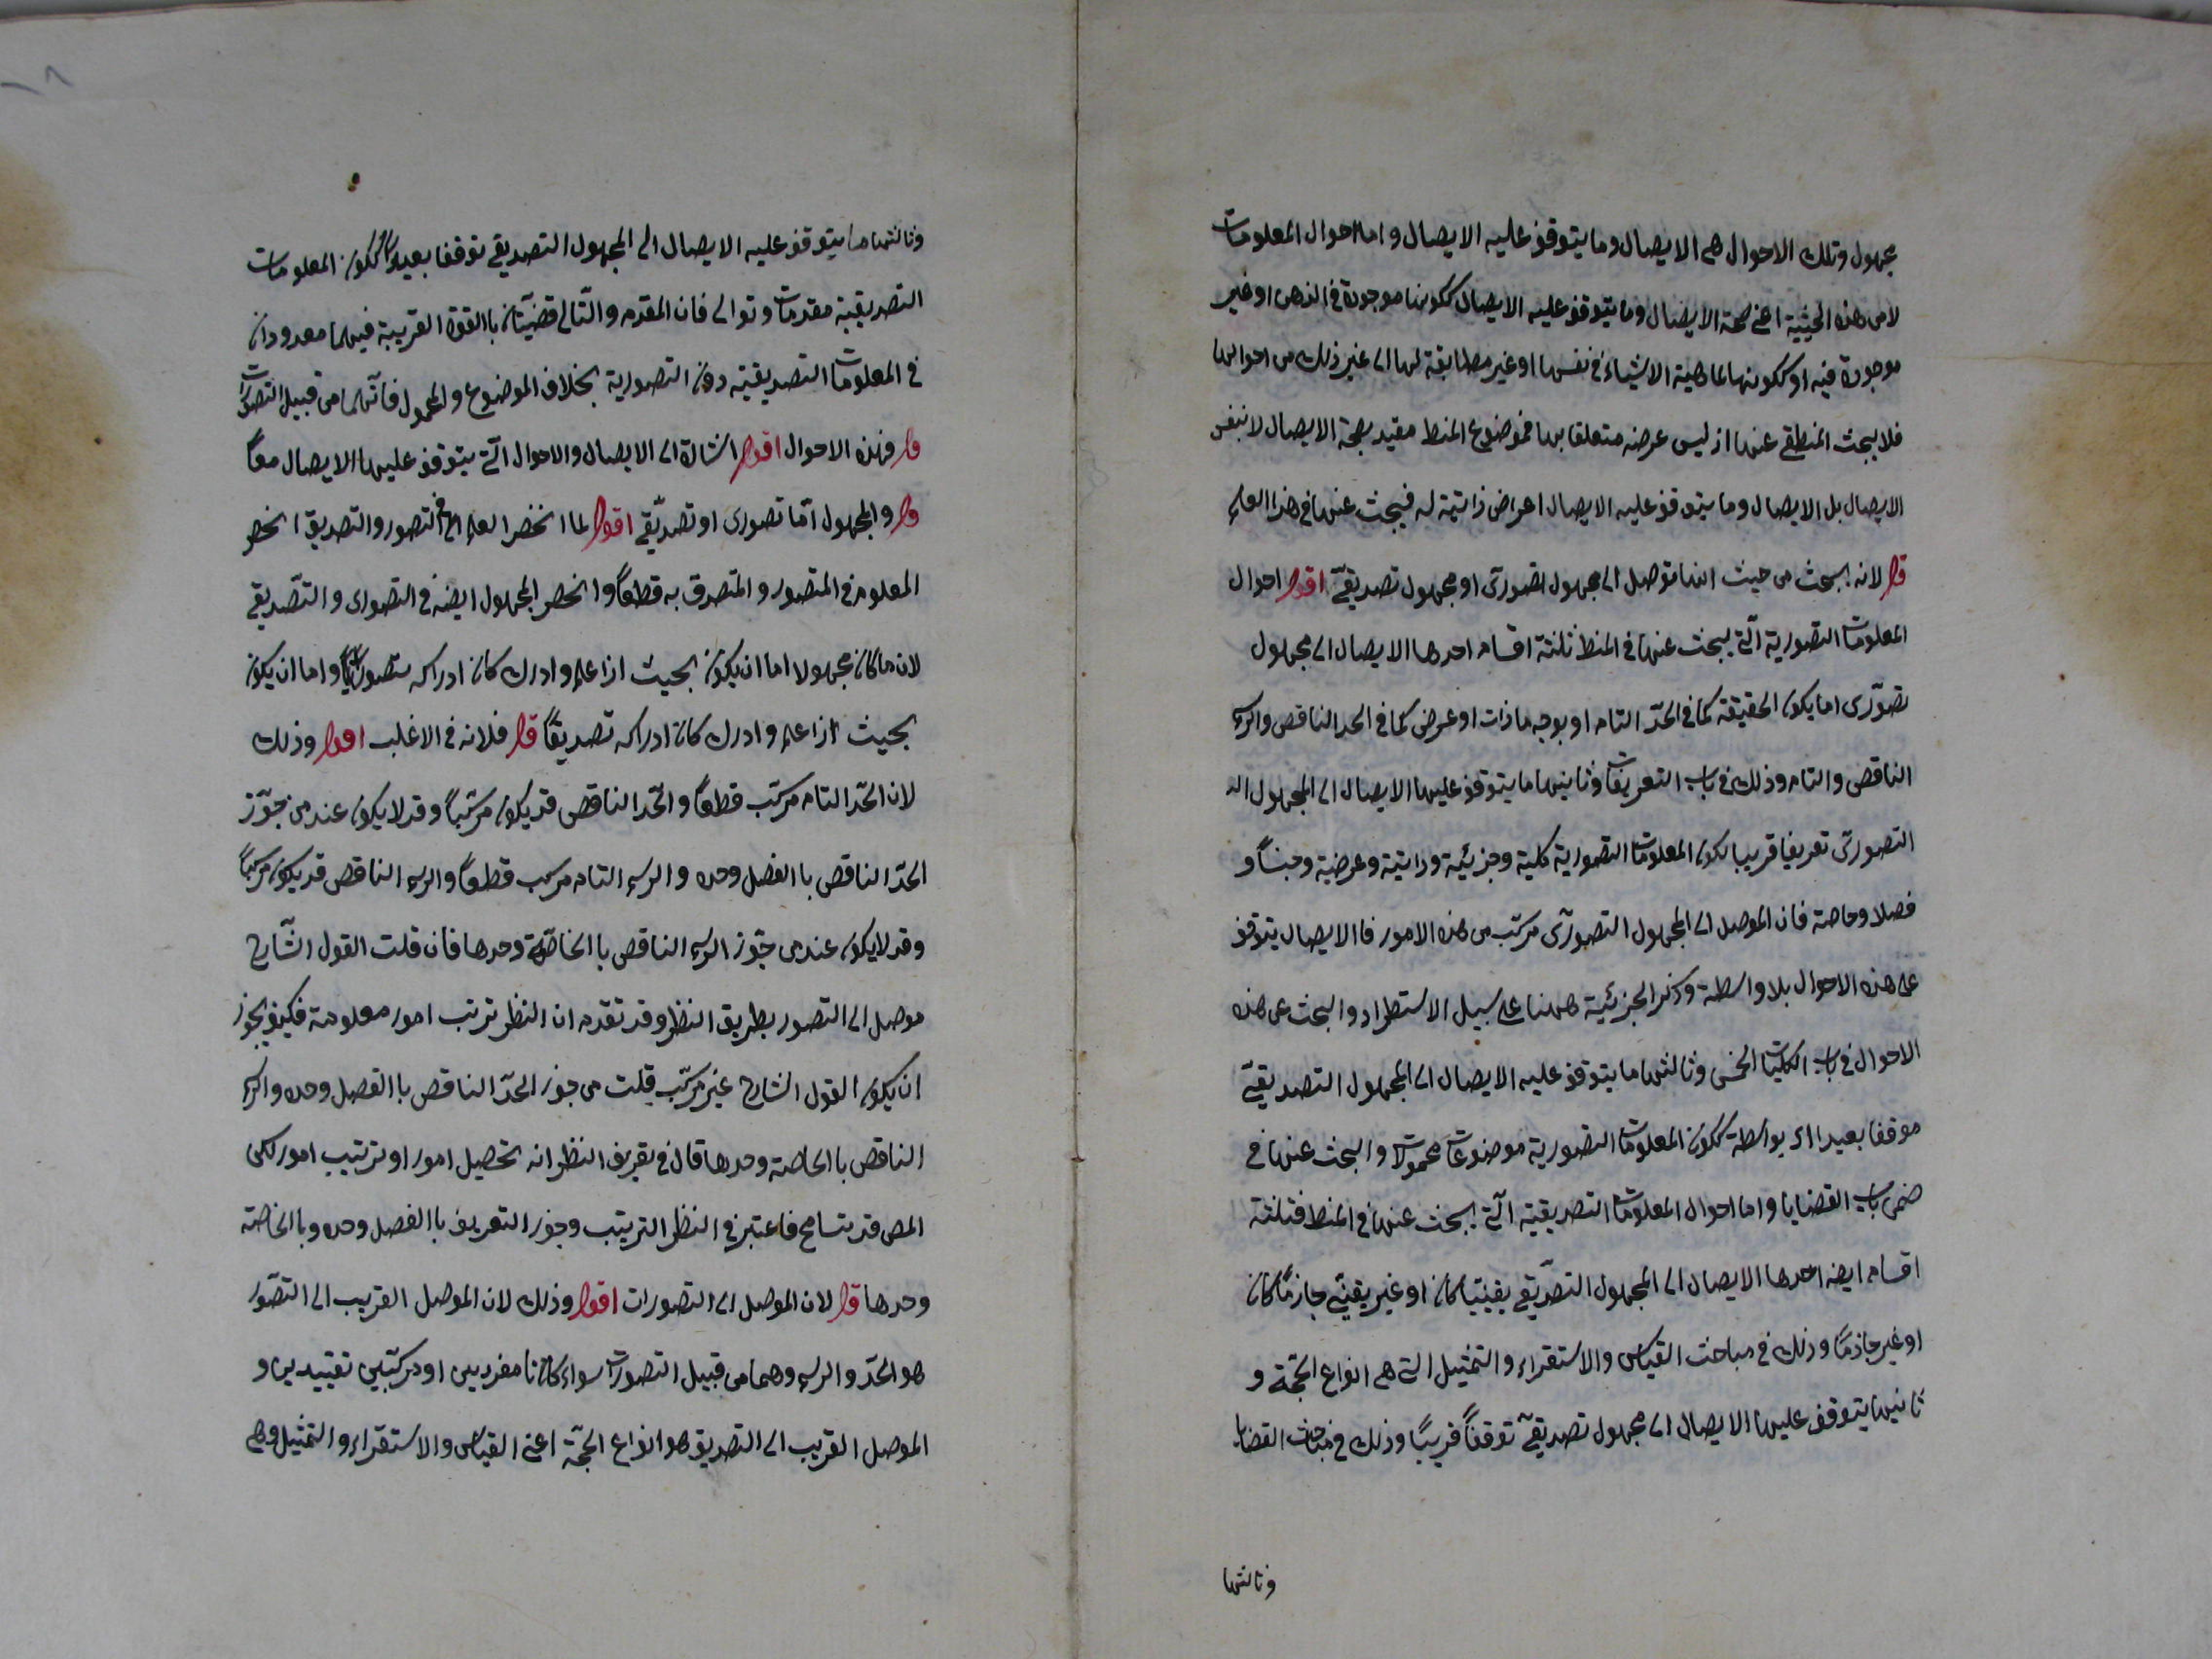 مجهول وتلك الاحوال هى الايصال وما يتوقف عليه الايصال واما احوال المعلومات
لا من هذه الحيثية اعنى صحة الايصال وما يتوقف عليه الايصال ككونها موجودة فى الذهن او غير
موجودة فيه او ككونها لماهية الاشياء فى نفسها او غير مطابقة لها الى غير ذلك من احوالها
فلا يبحث المنطقى عنها اذ ليس غرضه متعلقا بها فموضوع المنط مقيد بصحة الايصال لا بنفس
الايصال بل الايصال وما يتوقف عليه الايصال اعراض ذاتية له فيبحث عنها فى هذا العلم
قال لانه يبحث من حيث انها توصل الى مجهول تصورى او مجهول تصديقى اقول احوال
المعلومات التصورية التى يبحث عنها فى المنط ثلثة اقسام احدها الايصال الى مجهول
تصورى اما بكون الحقيقة كما فى الحد التام او بوجه ما ذات او عرض كما فى الحد الناقص والرسم
الناقص والتام وذلك فى باب التعريفات وثانيها ما يتوقف عليها الايصال الى المجهول الد
التصورى تعريفا قريبا لكون المعلومات التصورية كلية وجزئية وذاتية وعرضية وجنسا و
فصلا وخاصة فان الموصل الى المجهول التصورى مركب من هذه الامور فاالايصال يتوقف
على هذه الاحوال بلا واسطة وذكر الجزئية ههنا على سبيل الاستطراد والبحث عن هذه
الاحوال فى باب الكليات الخمس وثالثها ما يتوقف عليه الايصال الى المجهول التصديقى
موقفا بعيدا اى بواسطة ككون المعلومات التصورية موضوعات محمولات والبحث عنها فى
ضمن باب القضايا واما احوال المعلومات التصديقية التى يبحث عنها فى المنط فثلثة
اقسام ايضه احدها الايصال الى المجهول التصديقى يقينيا كان او غير يقينى جازما كان
او غير جازما وذلك فى مباحث القياس والاستقراء والتمثيل التى هى انواع الحجة و
ثانيها يتوقف عليها الايصال الى مجهول تصديقى توقفا قريبا وذلك فى مباحث القضايا
وثالثها
وثالثها ما يتوقف عليه الايصال الى المجهول التصديقى توقفا بعيدا ككون المعلومات
التصديقية مقدمات وتوالى فان المقدم والتالى قضيتان باالقوة القريبة فيهما معدودان
فى المعلومات التصديقية دون التصورية بخلاف الموضوع والمحمول فانهما من قبيل التصورات
قال فهذه الاحوال اقول اشارة الى الايصال والاحوال التى يتوقف عليها الايصال معا
قال والمجهول اما تصورى او تصديقى اقول لما انحصر العلم فى التصور والتصديق انحصر
المعلوم فى المتصور والمتصدق به قطعا وانحصر المجهول ايضه فى التصورى والتصديقى
لان ما كان مجهولا اما ان يكون بحيث اذا علم وادرك كان ادراكه تصورا واما ان يكون
بحيث اذا علم وادرك كان ادراكه تصديقا قال فلانه فى الاغلب اقول وذلك
لان الحد التام مركب قطعا والحد الناقص قد يكون مركبا وقد لا يكون عند من جوز
الحد الناقص باالفصل وحده والرسم التام مركب قطعا والرسم الناقص قد يكون مركبا
وقد لا يكون عند من جوز الرسم الناقص باالخاصة وحدها فان قلت القول الشارح
موصل الى التصور بطريق النظر وقد تقدم ان النظر ترتب امور معلومة فكيف يجوز
ان يكون القول الشارح غير مركب قلت من جوز الحد الناقص باالفصل وحده والرسم
الناقص باالخاصة وحدها قال فى تعريف النظر انه تحصيل امور او ترتيب امور لكن
المص قد يتسامح فاعتبر فى النظر الترتيب وجوز التعريف باالفصل وحده وباالخاصة
وحدها قال لان الموصل الى التصورات اقول وذلك لان الموصل القريب الى التصور
هو الحد والرسم وهما من قبيل التصورات سواء كانا مفردين او مركبين تقييدين و
الموصل القريب الى التصديق هو انواع الحجة اعنى القياس والاستقراء والتمثيل وهى